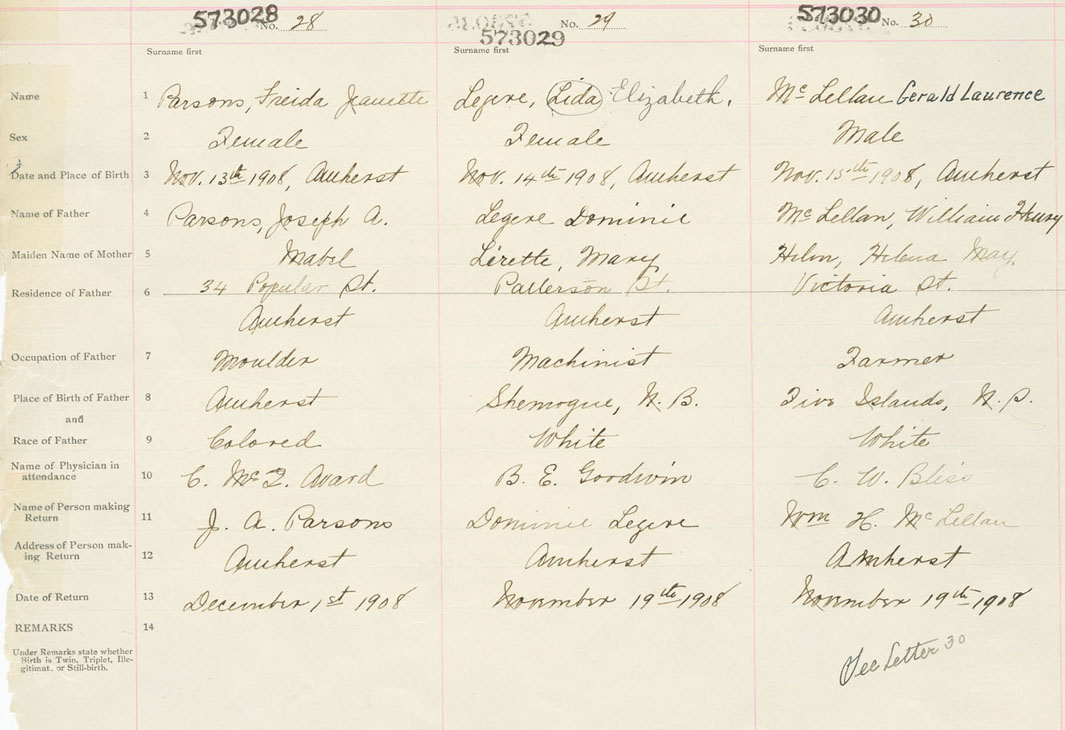 573028 No. 28 No. 29 573030 No. 30
573029
Surname first Surname first Surname first
Name 1 Parsons, Freida Jeanette Legere, Lida Elizabeth. McLellan Gerald Laurence
Sex 2 Female Female Male
Date and Place of Birth 3 Nov. 13th 1908, Amherst Nov. 14th 1908, Amherst Nov. 15th 1908, Amherst
Name of Father 4 Parsons, Joseph A. Legere Dominic McLellan, William Henry
Maiden Name of Mother 5 Mabel Lirette, Mary Helena May
Residence of Father 6 34 Popular St. Patterson St. Victoria St.
Amherst Amherst Amherst
Occupation of Father 7 Moulder Machinist Farmer
Place of Birth of Father 8 Amherst Shemogue, N. B. Five Islands, N. S.
and
Race of Father 9 Colored White White
Name of Physician in
attendance 10 C. McQ. Avard B. E. Goodwin C. W. Bliss
Name of Person making
Return 11 J. A. Parsons Dominic Legere Wm H. McLellan
Address of Person mak-
ing Return 12 Amherst Amherst Amherst
Date of Return 13 December 1st 1908 November 19th 1908 November 19th 1908
REMARKS 14
Under Remarks state whether
Birth is Twin, Triplet, Ille-
gitimat. or Still-birth.
See Letter 30